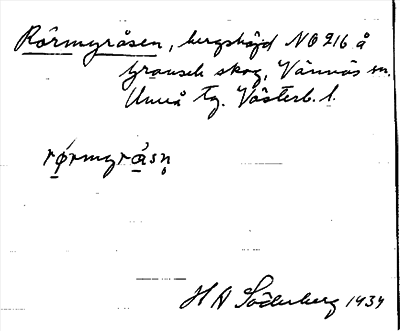 Rörmyråsen, bergshöjd NO 216 å
Gransele skog, Vännäs sn.
Umeå tg. Västerb. l.
rǿrmyrå̱sṇ
H A Söderberg 1934